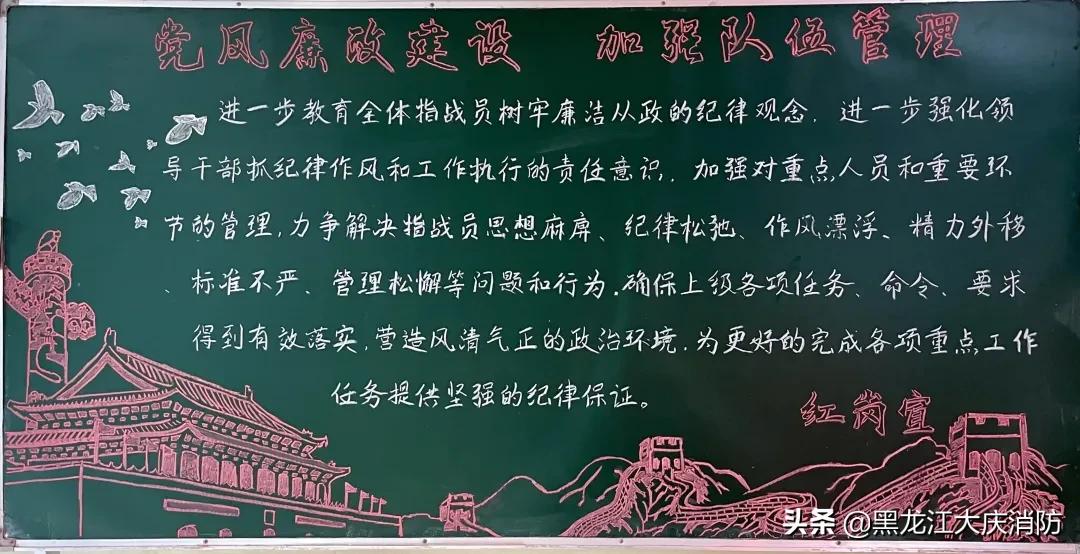 党风廉政建设 加强队伍管理
进一步教育全体指战员树牢廉洁从政的纪律观念，进一步强化领
导干部抓纪律作风和工作执行的责任意识，加强对重点人员和重要环
节的管理，力争解决指战员思想麻痹、纪律松弛、作风漂浮、精力外移
、标准不严、管理松懈等问题和行为，确保上级各项任务、命令、要求
得到有效落实，营造风清气正的政治环境，为更好的完成各项重点工作
任务提供坚强的纪律保证。
红岗宣
头条 @黑龙江大庆消防